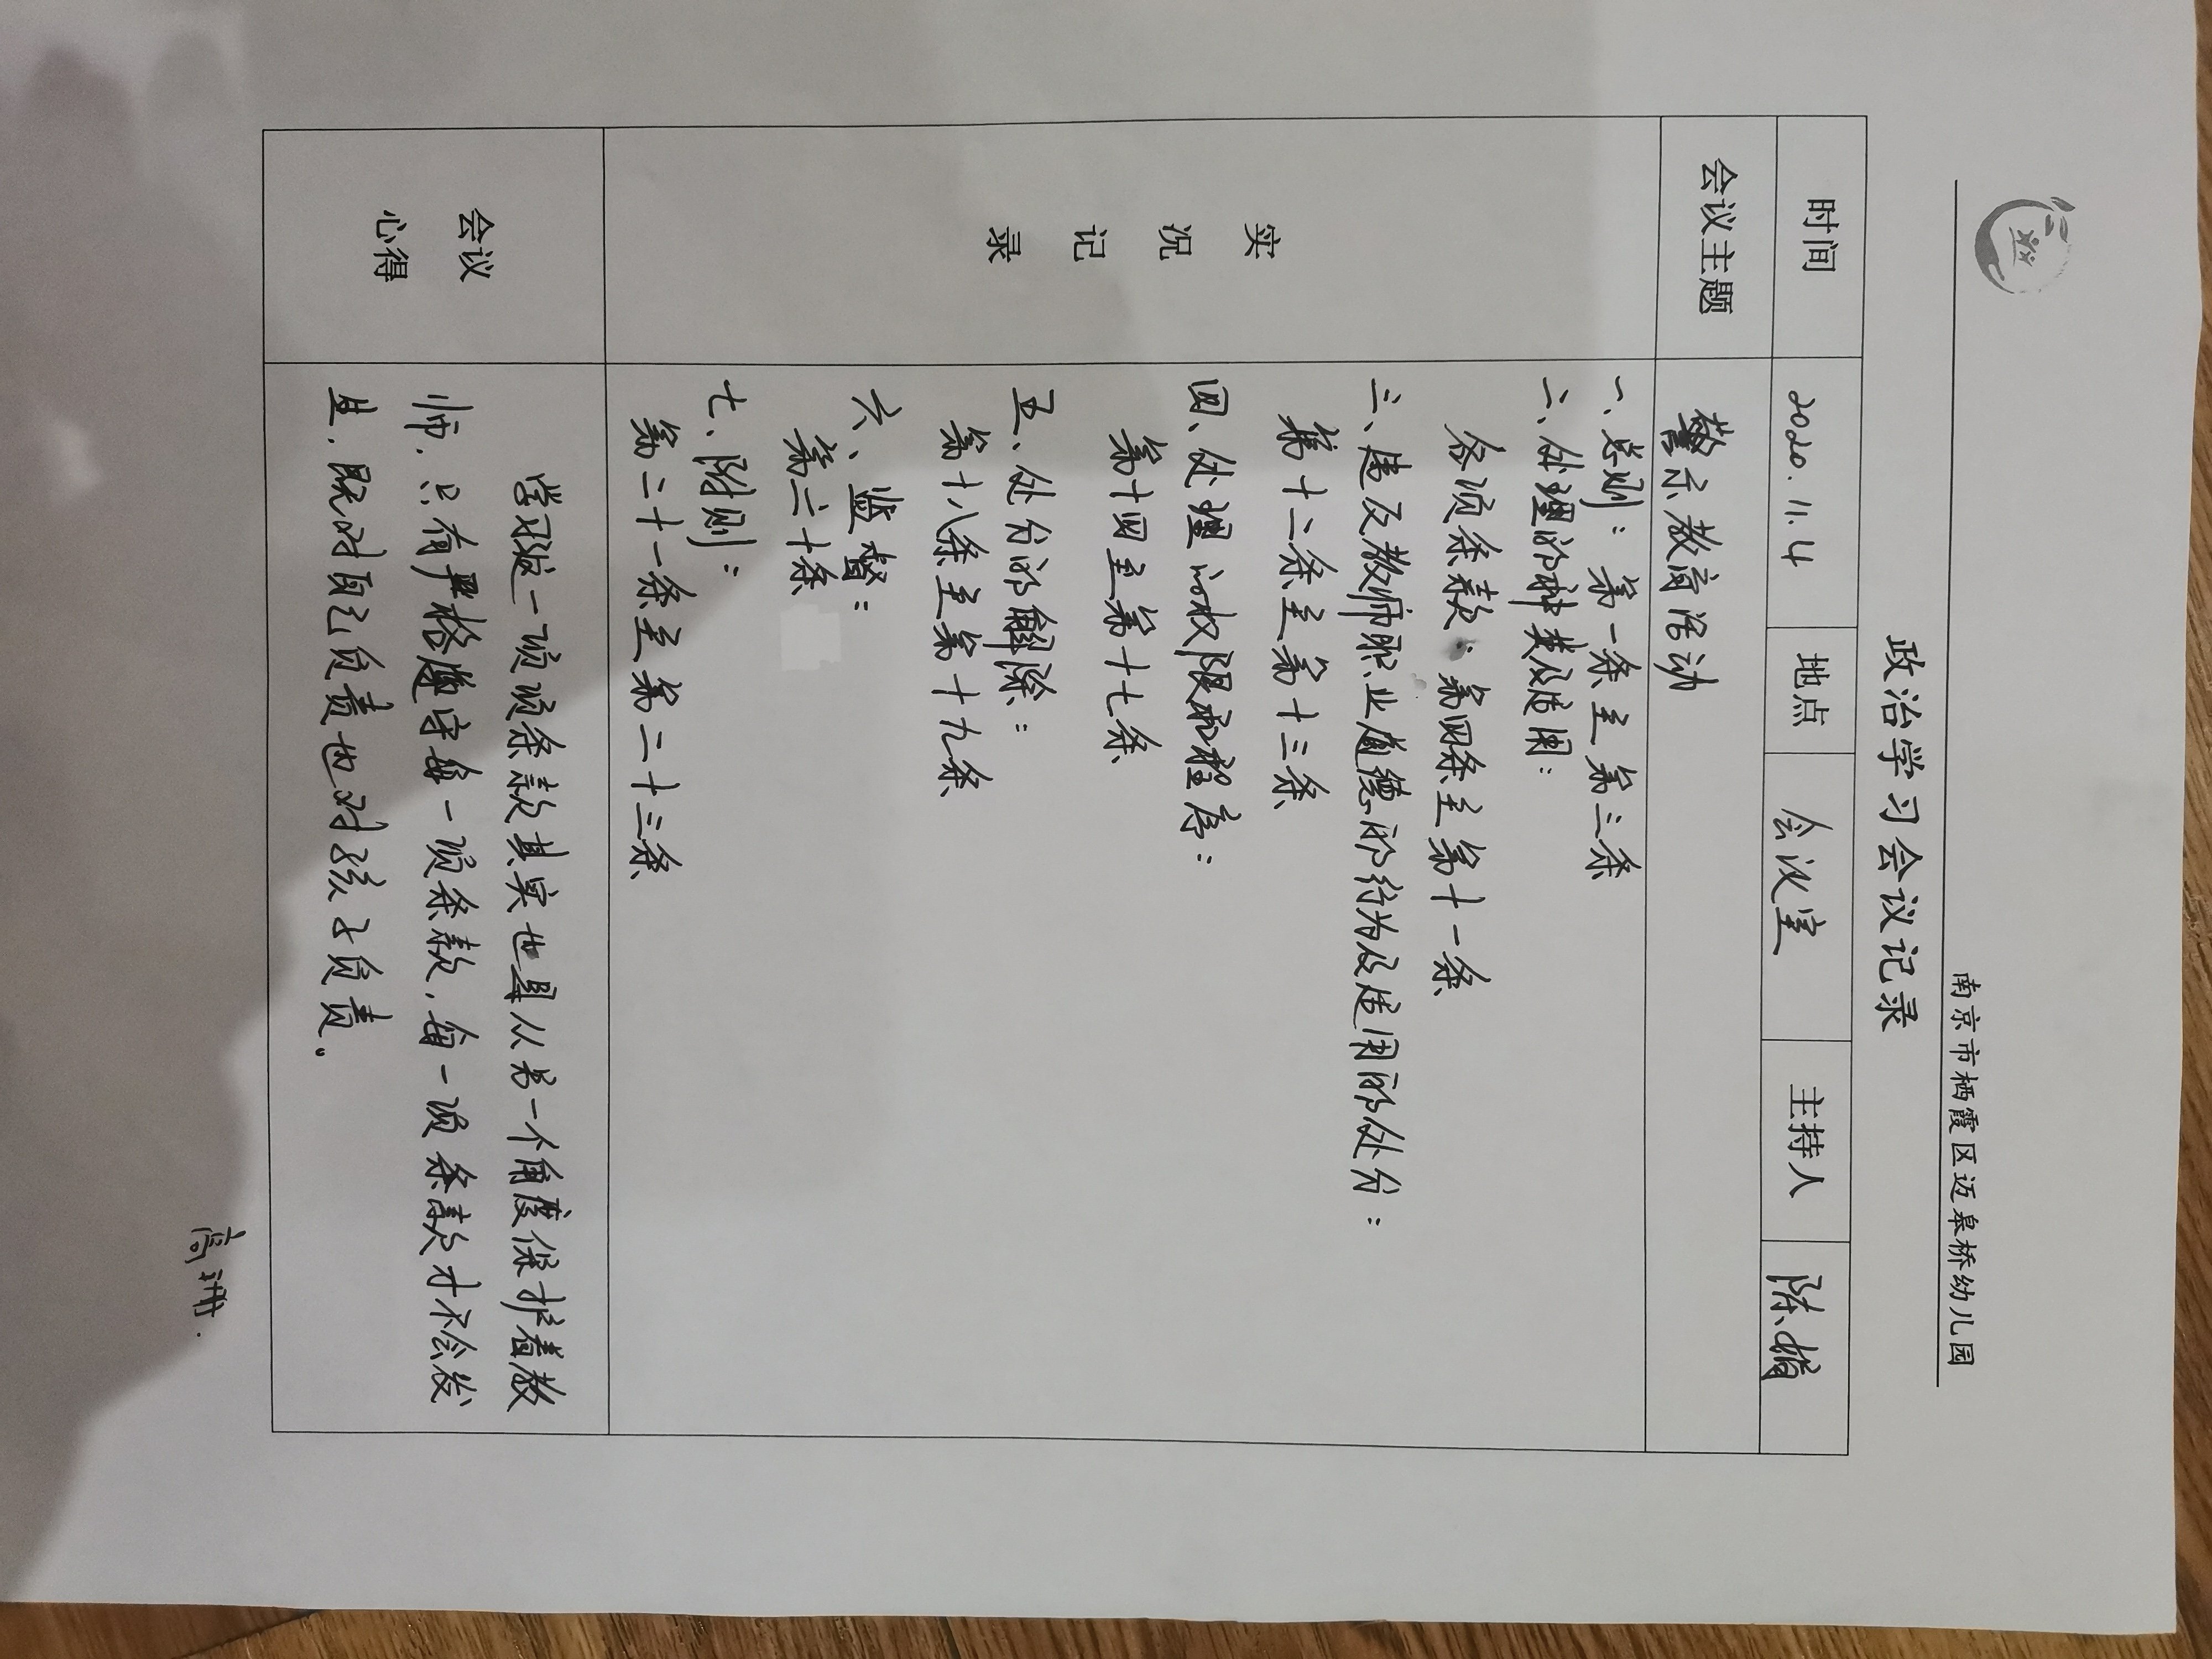 南京市栖霞区迈皋桥幼儿园
政治学习会议记录
时间 2020.11.4 地点 会议室 主持人 陈娟
会议主题 警示教育活动
实况记录
一、总则：第一条至第三条
二、处理的种类及适用：
各项条款：第四条至第十一条
三、违反教师职业道德的行为及适用的处分：
第十二条至第十三条
四、处理的权限和程序：
第十四至第十七条
五、处分的解除：
第十八条至第十九条
六、监督：
第二十条
七、附则：
第二十一条至第二十三条
会议心得
学习这一项项条款其实也是从另一个角度保护着教
师，只有严格遵守每一项条款，每一项条款才不会发
生，既对自己负责也对孩子负责。
高